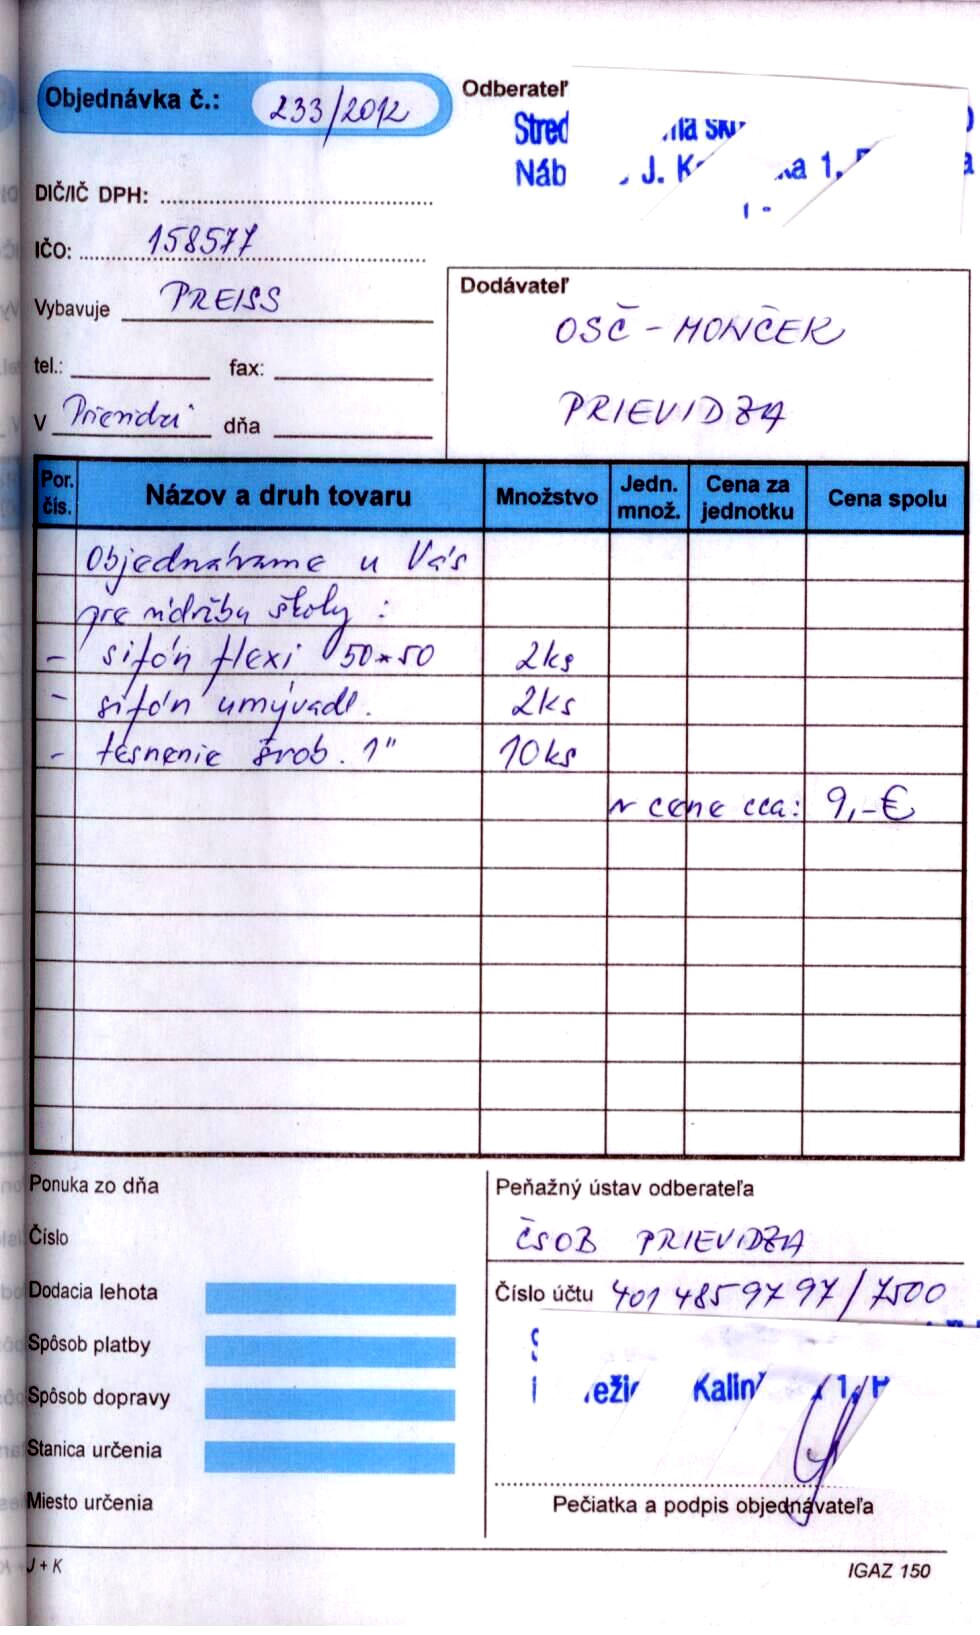 Objednávka č.: 233/2012
Odberateľ
Náb J. K 1,
DIČ/IČ DPH:
IČO: 158577
Vybavuje PREISS
tel.: fax:
V Prievidzi dňa
Dodávateľ
OSČ - MONČEK
PRIEVIDZA
Por. čís. Názov a druh tovaru Množstvo Jedn. množ. Cena za jednotku Cena spolu
Objednávame u Vás
pre údržbu školy :
- sifón flexi 50*50 2ks
- sifón umývadl. 2ks
- tesnenie šrob. 1" 10ks
v cene cca: 9,-€
Ponuka zo dňa
Číslo
Dodacia lehota
Spôsob platby
Spôsob dopravy
Stanica určenia
Miesto určenia
Peňažný ústav odberateľa
ČSOB PRIEVIDZA
Číslo účtu 4014859797/7500
Pečiatka a podpis objednávateľa
J + K
IGAZ 150